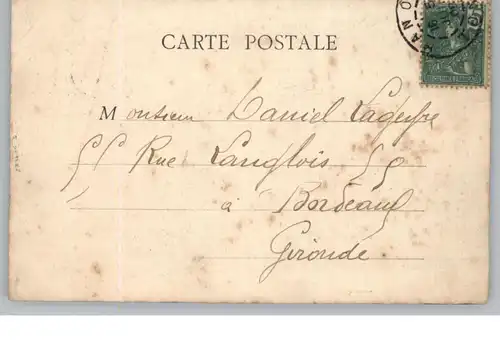 CARTE POSTALE
Monsieur Daniel Lageyre
55 Rue Langlois 55
à Bordeaux
Gironde